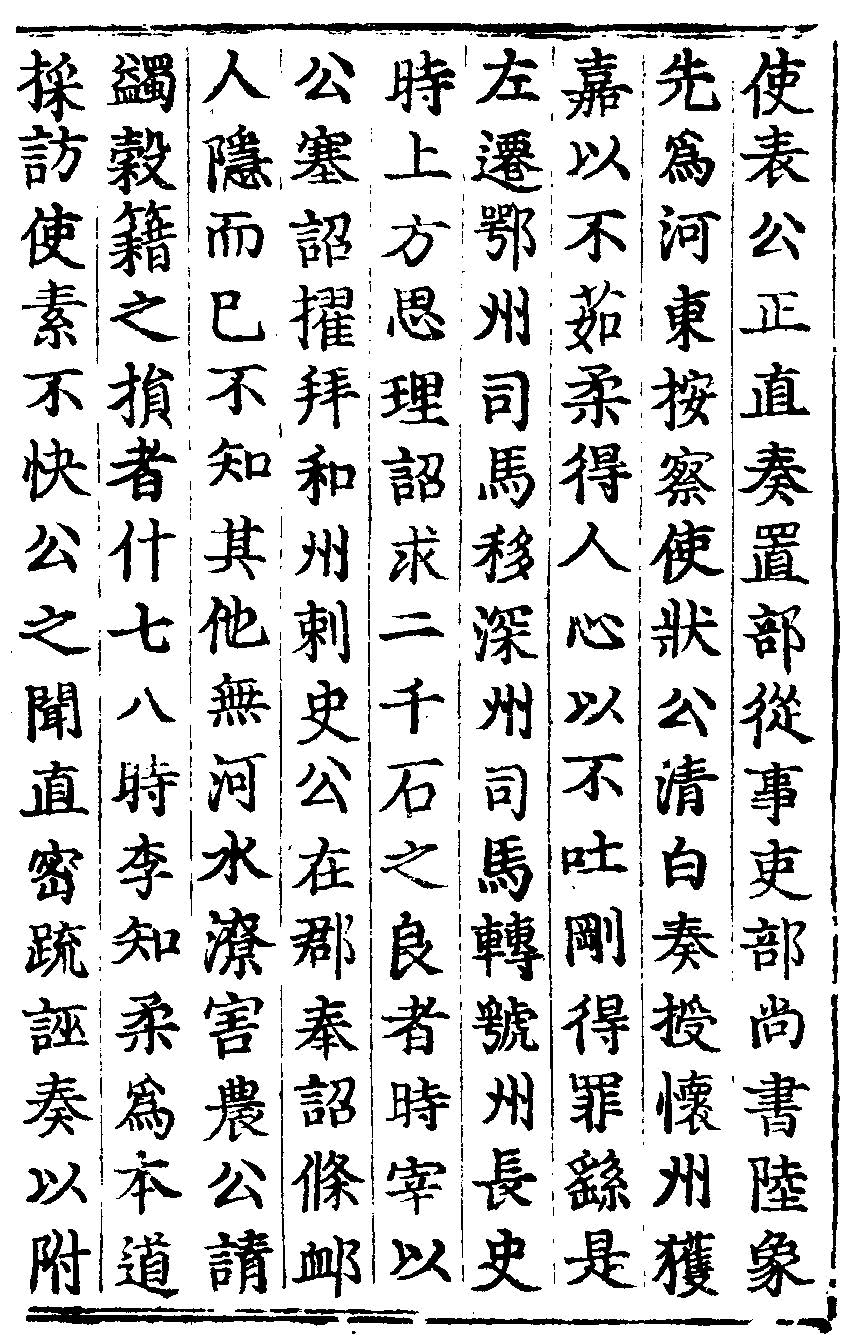 使表公正直奏置部從事吏部尚書陸象
先爲河東按察使狀公清白奏授懷州獲
嘉以不茹柔得人心以不吐剛得罪繇是
左遷鄂州司馬移深州司馬轉號州長史
時上方思理詔求二千石之良者時宰以
公塞詔擢拜和州刺史公在郡奉詔條䘏
人隱而已不知其他無河水潦害農公請
蠲穀籍之損者什七八時李知柔爲本道
採訪使素不快公之聞直密疏誣奏以附